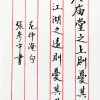 庙堂之上則憂其
江湖之遠則憂其
范仲淹句